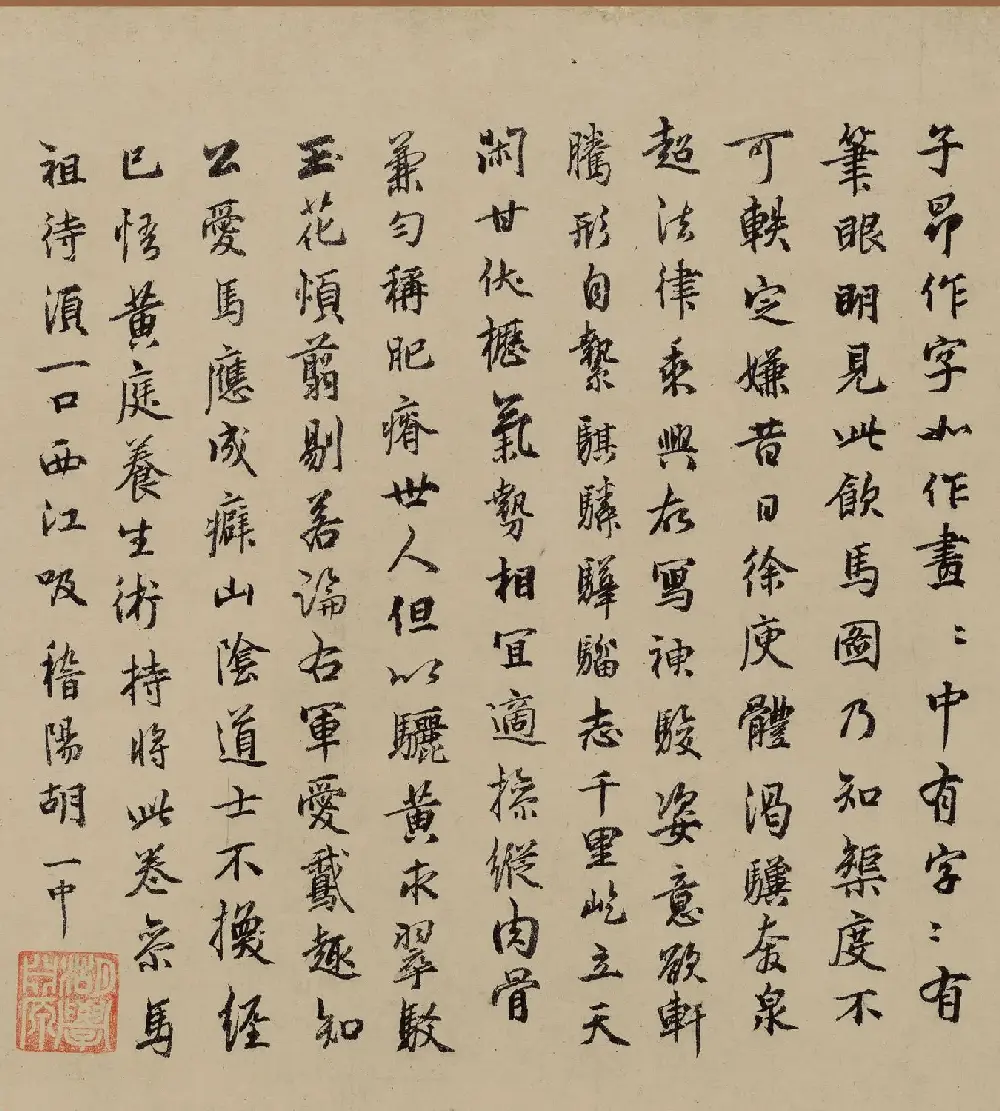 子昂作字如作畫〻中有字〻有
筆眼明見此飲馬圖乃知榘度不
可軼定嫌昔日徐庾體渴驥奔泉
超法律乘興故寫神駿姿意欲軒
騰形自縶騏驎驊騮志千里屹立天
閑甘伏櫪氣勢相宜適操縱肉骨
兼勻稱肥瘠世人但以驪黃求翠駮
玉花煩翦剔若論右軍愛鵞趣知
公愛馬應成癖山陰道士不換經
已悟黃庭養生術持將此卷參馬
祖待須一口西江吸稽陽胡一中